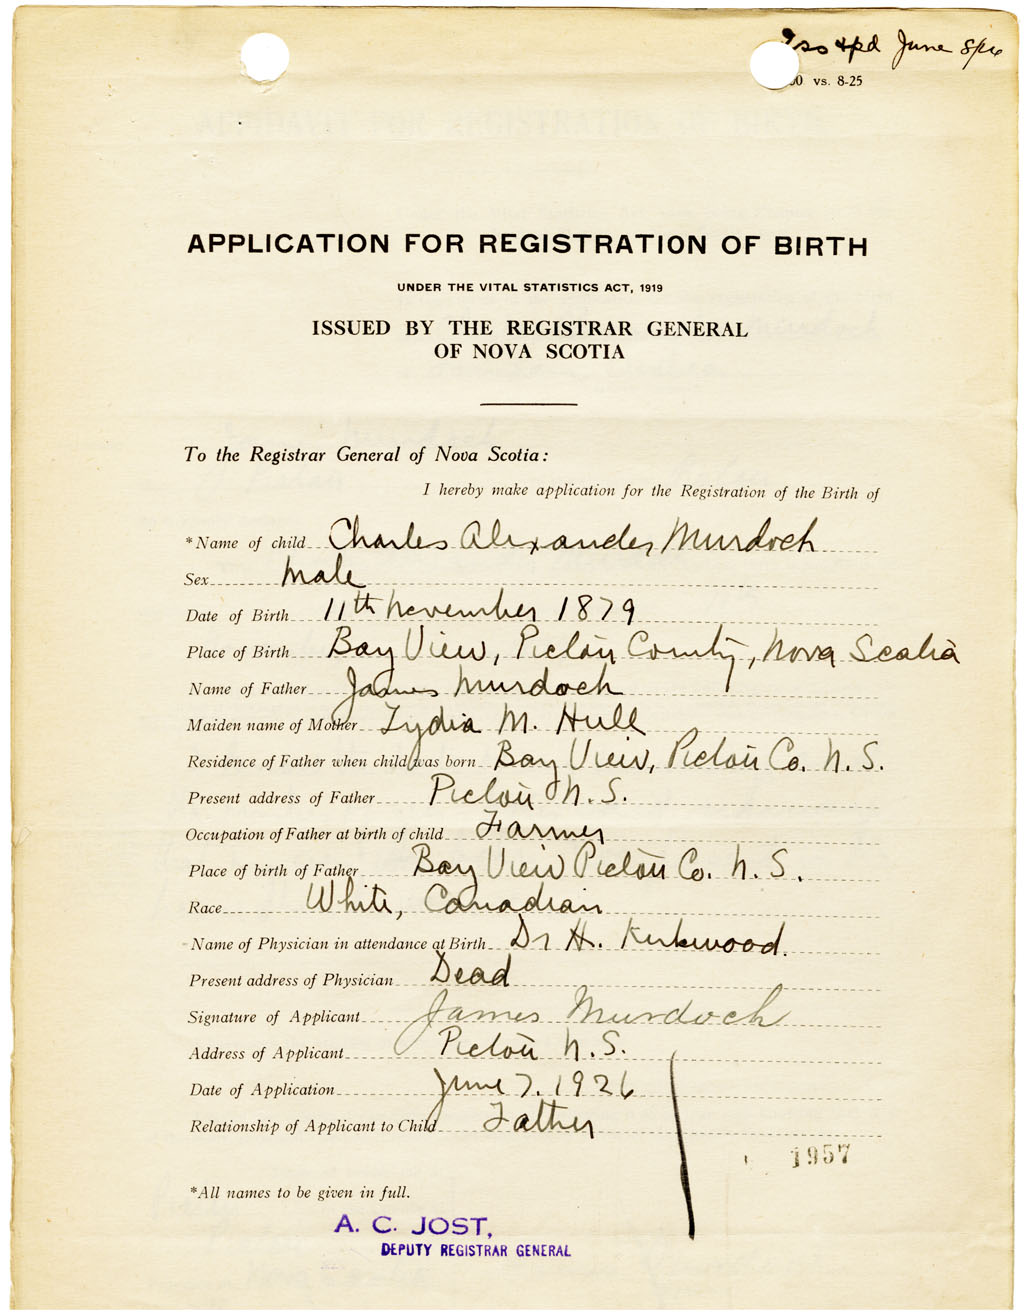 Iss & pd June 8/26
00 vs. 8-25
APPLICATION FOR REGISTRATION OF BIRTH
UNDER THE VITAL STATISTICS ACT, 1919
ISSUED BY THE REGISTRAR GENERAL
OF NOVA SCOTIA
To the Registrar General of Nova Scotia:
I hereby make application for the Registration of the Birth of
*Name of child Charles Alexander Murdoch
Sex Male
Date of Birth 11th November 1879
Place of Birth Bay View, Pictou County, Nova Scotia
Name of Father James Murdoch
Maiden name of Mother Lydia M. Hull
Residence of Father when child was born Bay View, Pictou Co. N. S.
Present address of Father Pictou N. S.
Occupation of Father at birth of child Farmer
Place of birth of Father Bay View Pictou Co. N. S.
Race White, Canadian
Name of Physician in attendance at Birth Dr H. Kirkwood.
Present address of Physician Dead
Signature of Applicant James Murdoch
Address of Applicant Pictou N. S.
Date of Application June 7. 1926
Relationship of Applicant to Child Father
1957
*All names to be given in full.
A. C. JOST,
DEPUTY REGISTRAR GENERAL